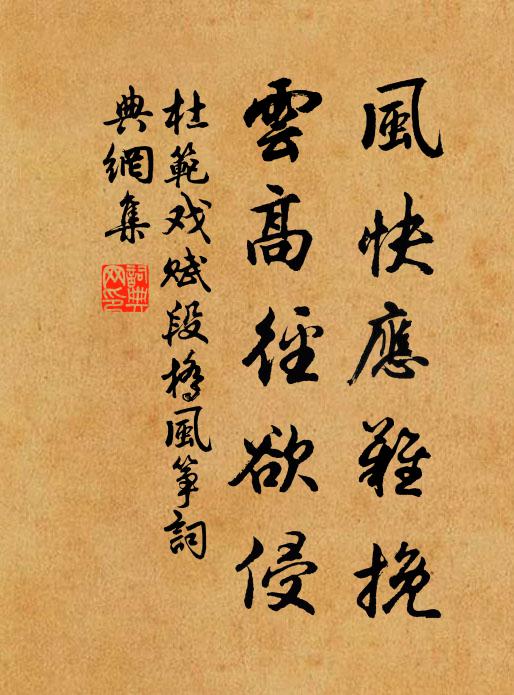 風快應難挽
雲高徑欲侵
杜範戏赋段橋風筝詞
典網集
詞典
网印